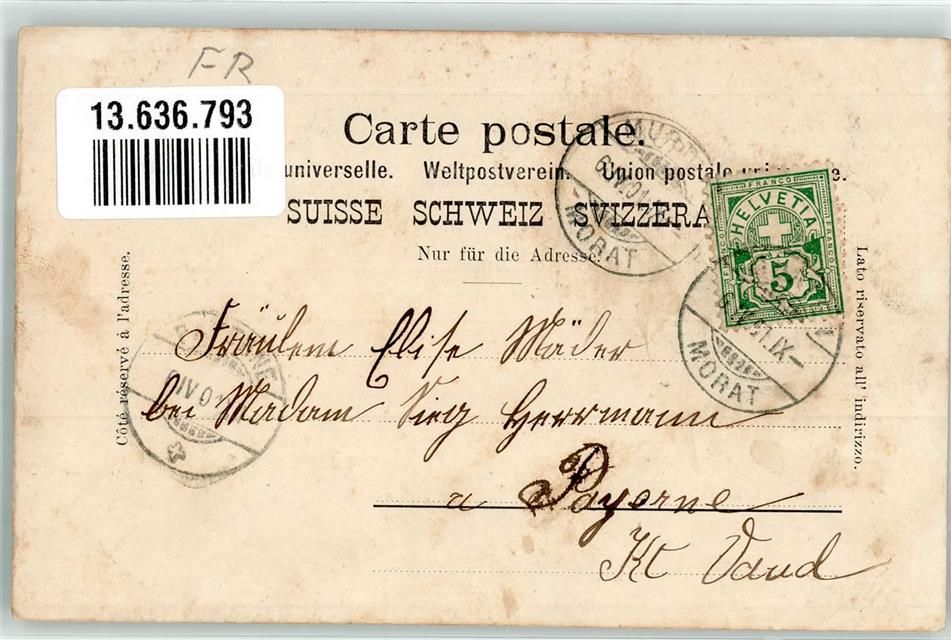 FR
13.636.793
Carte postale.
universelle. Weltpostverein. Union postale
SUISSE SCHWEIZ SVIZZERA
Nur für die Adresse.
Côté réservé à l'adresse.
Lato riservato all' indirizzo.
MORAT
FRANCO
HELVETIA
5
MORAT
Fräulein Elise Mäder
bei Madam Sieg Herrmann
a Payerne
Kt Vaud